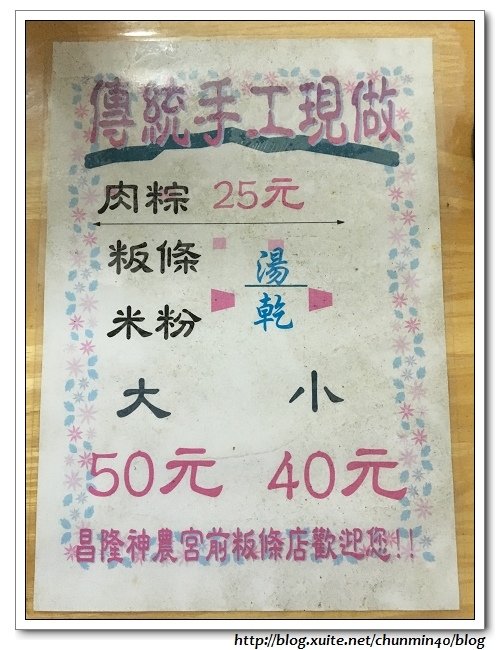 傳統手工現做
肉粽 25元
粄條
米粉
湯
乾
大 小
50元 40元
昌隆神農宮前粄條店歡迎您!!
http://blog.xuite.net/chunmin40/blog